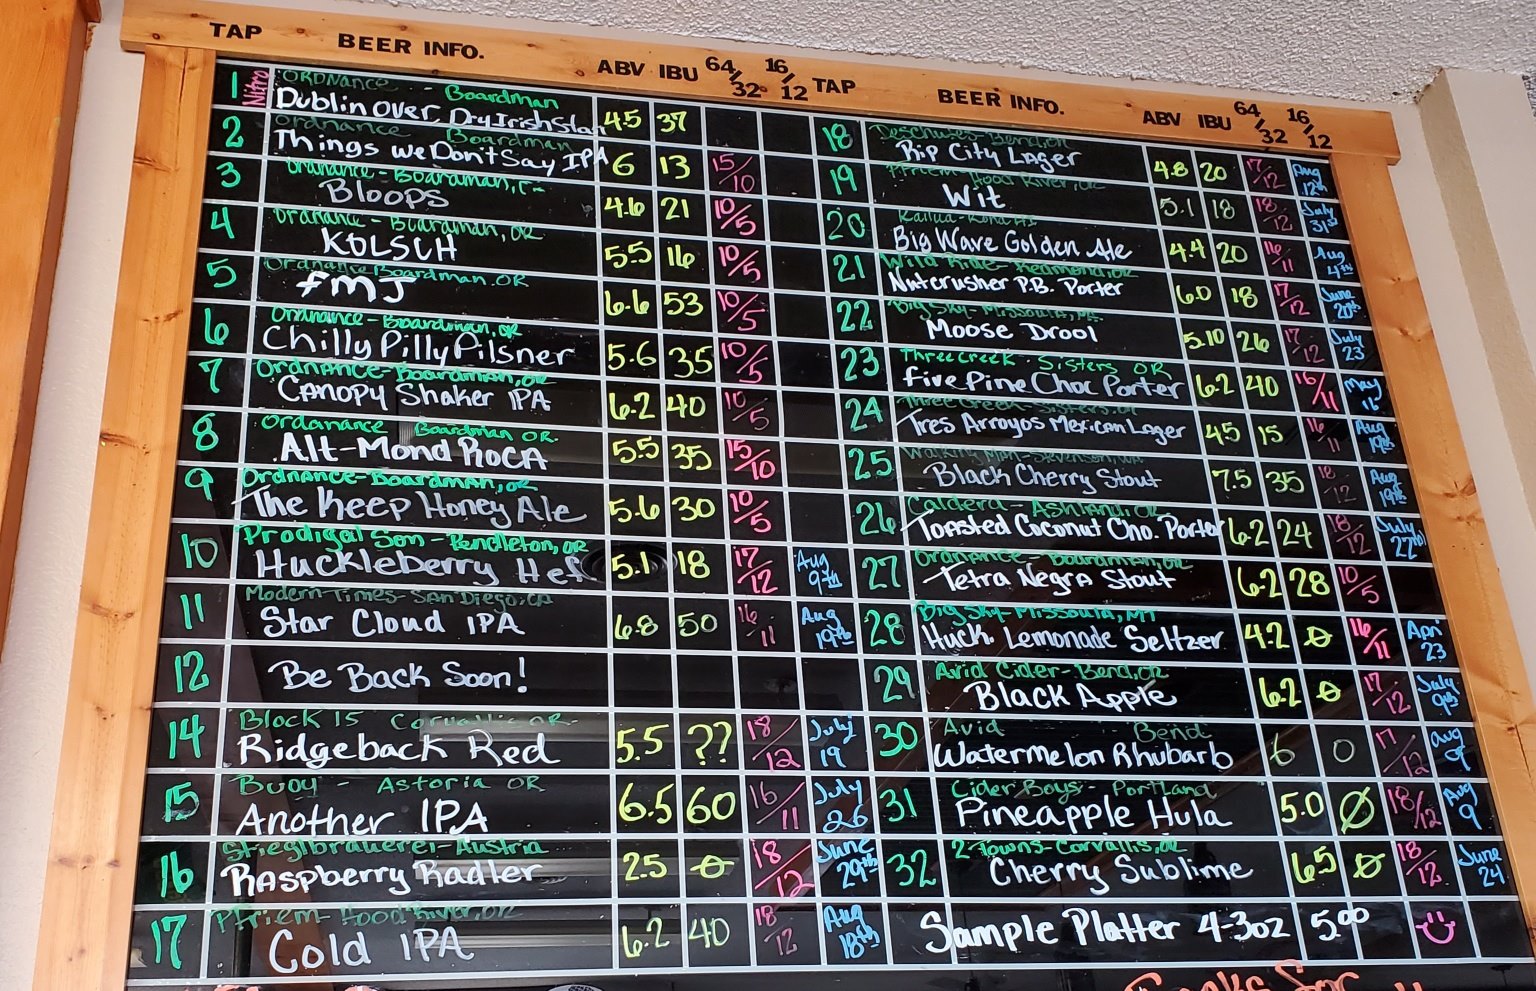 TAP BEER INFO. ABV IBU 64/32 16/12
1 Nitro Ordnance - Boardman
Dublin Over, Dry Irish Stou 4.5 37
2 Ordnance Boardman
Things we Don't Say IPA 6 13 15/10
3 Ordnance - Boardman,
Bloops 4.6 21 10/5
4 Ordnance - Boardman, OR
KOLSCH 5.5 16 10/5
5 Ordnance Boardman. OR
FMJ 6.6 53 10/5
6 Ordnance - Boardman, OR
Chilly Pilly Pilsner 5.6 35 10/5
7 Ordnance - Boardman, OR
Canopy Shaker IPA 6.2 40 10/5
8 Ordanance Boardman OR.
Alt-Mond Roca 5.5 35 15/10
9 Ordnance - Boardman, OR
The Keep Honey Ale 5.6 30 10/5
10 Prodigal Son - Pendleton, OR
Huckleberry Hef 5.1 18 17/12 Aug 9th
11 Modern Times - San Diego, CA
Star Cloud IPA 6.8 50 16/11 Aug 19th
12 Be Back Soon!
14 Block 15 Corvallis OR.
Ridgeback Red 5.5 ?? 18/12 July 19
15 Buoy - Astoria OR
Another IPA 6.5 60 16/11 July 26
16 Stieglbrauerei - Austria
Raspberry Radler 2.5 0 18/12 June 29th
17 Pfriem - Hood River, OR
Cold IPA 6.2 40 18/12 Aug 18th
TAP BEER INFO. ABV IBU 64/32 16/12
18 Deschutes - Bend, OR
Rip City Lager 4.8 20 17/12 Aug 12th
19 Pfriem - Hood River, OR
Wit 5.1 18 18/12 July 31st
20 Kailua-Kona HI
Big Wave Golden Ale 4.4 20 16/11 Aug 4th
21 Wild Ride - Redmond, OR
Nutcrusher P.B. Porter 6.0 18 17/12 June 20th
22 Big Sky - Missoula, MT.
Moose Drool 5.10 26 17/12 July 23
23 Three Creek - Sisters OR
Five Pine Choc Porter 6.2 40 16/11 May 16
24 Three Creek - Sisters, OR
Tres Arroyos Mexican Lager 4.5 15 16/11 Aug 19th
25 Walking Man - Stevenson, WA
Black Cherry Stout 7.5 35 18/12 Aug 19th
26 Caldera - Ashland, OR
Toasted Coconut Cho. Porter 6.2 24 18/12 July 27th
27 Ordnance - Boardman, OR
Tetra Negra Stout 6.2 28 10/5
28 Big Sky - Missoula, MT
Huck. Lemonade Seltzer 4.2 0 16/11 Apr 23
29 Avid Cider - Bend, OR
Black Apple 6.2 0 17/12 July 9th
30 Avid Bend
Watermelon Rhubarb 6 0 17/12 Aug 9
31 Cider Boys - Portland
Pineapple Hula 5.0 Ø 18/12 Aug 9
32 2 Towns - Corvallis, OR
Cherry Sublime 6.5 0 18/12 June 24
Sample Platter 4-3oz 5.00